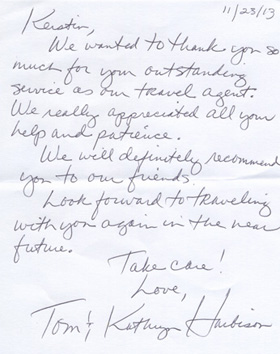 11/23/13
Kerstin,
We wanted to thank you so
much for your outstanding
service as our travel agent.
We really appreciated all your
help and patience.
We will definitely recommend
you to our friends.
Look forward to traveling
with you again in the near
future.
Take care!
Love,
Tom & Kathryn Harbison